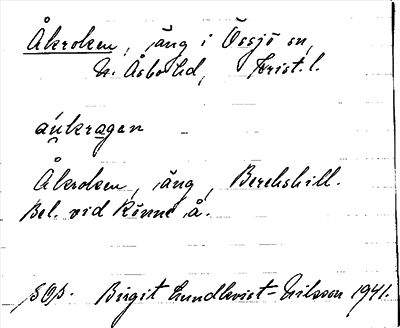 Åkroken, äng i Össjö sn,
N. Åsbo hd, Krist. l.
áukragen
Åkroken, äng, Berekshill.
Bel. vid Rönne å.
SOS. Birgit Lundkvist-Nilsson 1941.